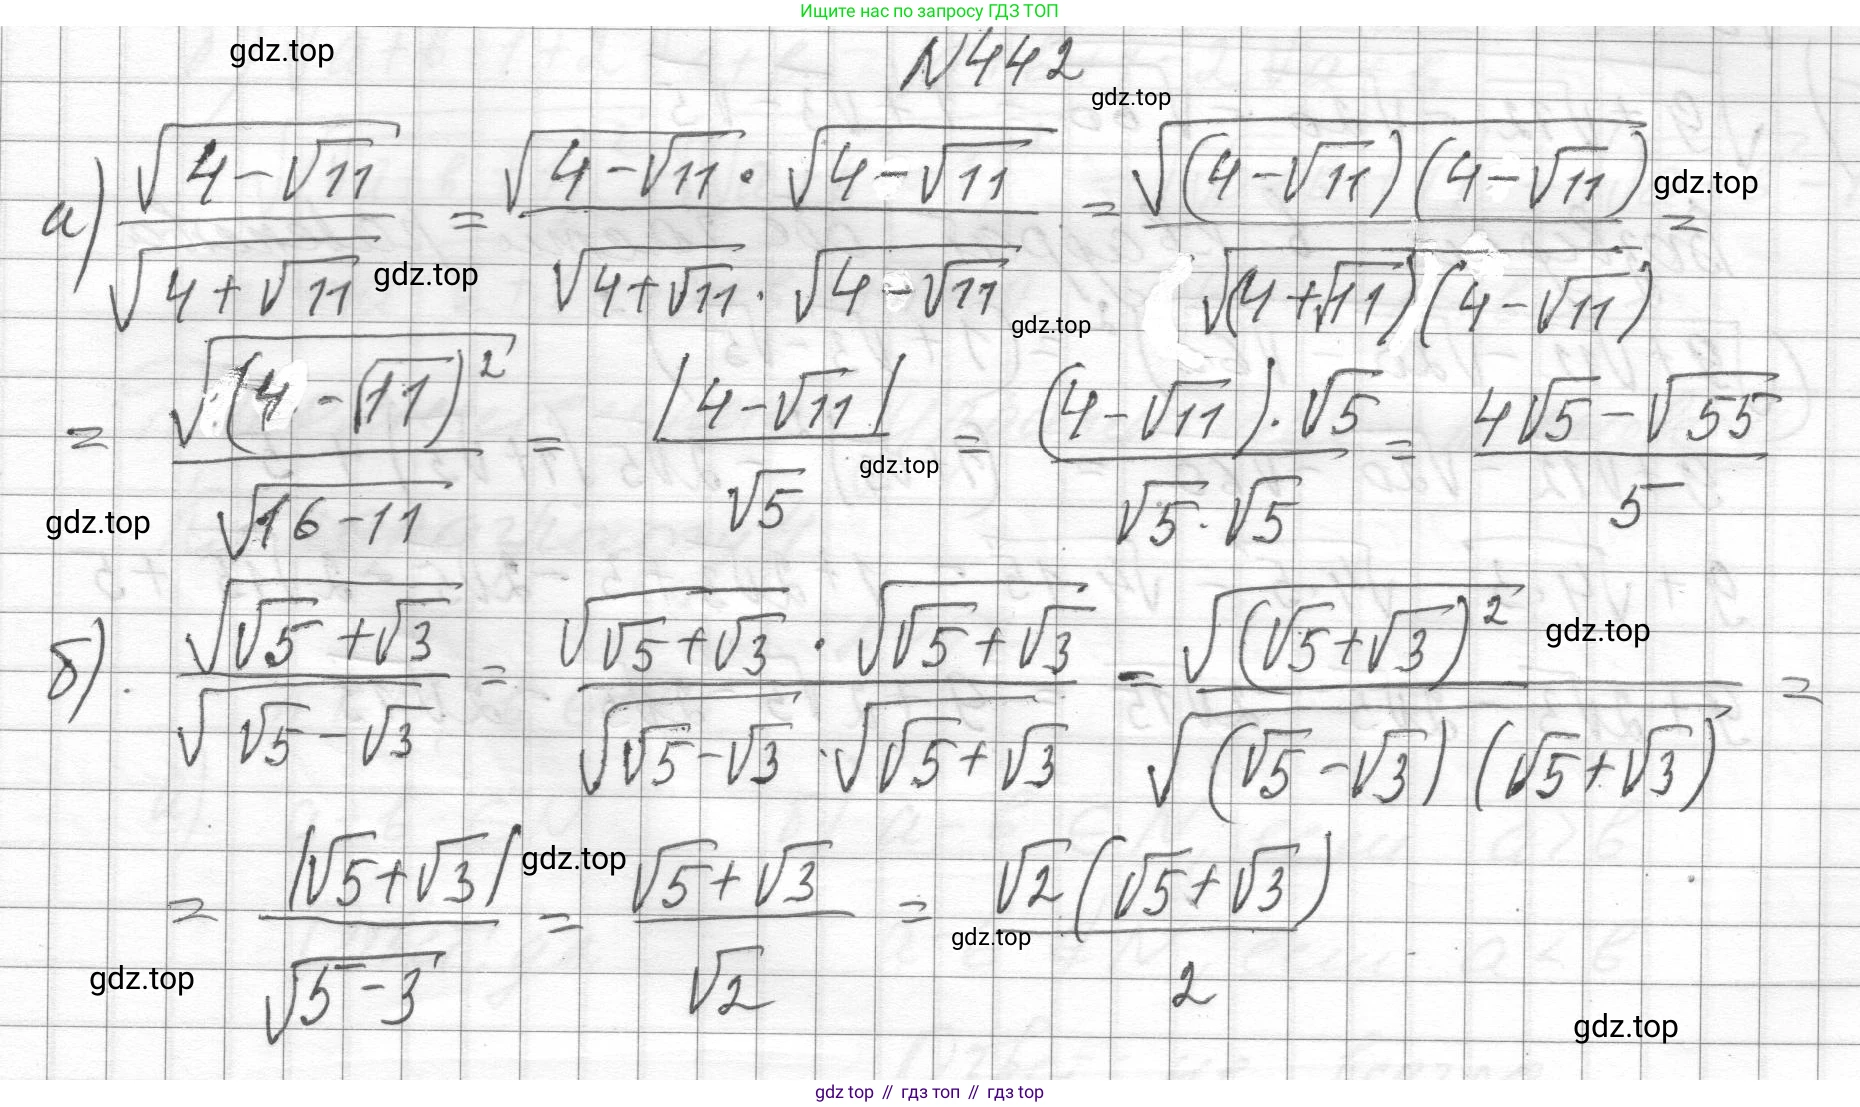 Ищите нас по запросу ГДЗ ТОП
gdz.top
N442
gdz.top
а) √(4-√11) / √(4+√11) = √(4-√11) · √(4-√11) / √(4+√11) · √(4-√11) = √((4-√11)(4-√11)) / √((4+√11)(4-√11)) =
gdz.top
gdz.top
gdz.top
= √((4-√11)²) / √(16-11) = |4-√11| / √5 = (4-√11)·√5 / √5·√5 = 4√5-√55 / 5
gdz.top
gdz.top
б). √(√5+√3) / √(√5-√3) = √(√5+√3) · √(√5+√3) / √(√5-√3) · √(√5+√3) = √((√5+√3)²) / √((√5-√3)(√5+√3)) =
gdz.top
= |√5+√3| / √(5-3) = √5+√3 / √2 = √2(√5+√3) / 2
gdz.top
gdz.top
gdz.top
gdz.top
gdz top // гдз топ // гдз top